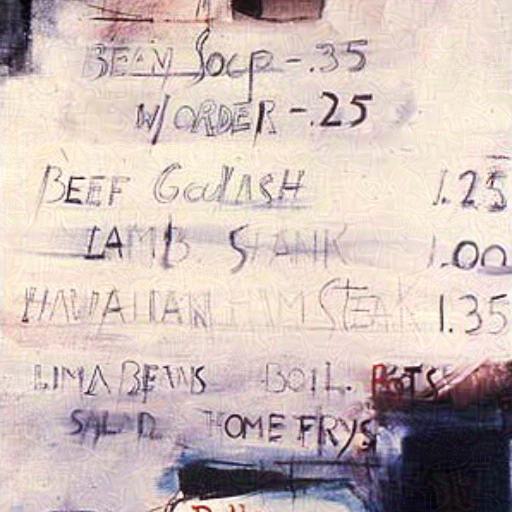 BEAN SOUP - .35
W/ ORDER - .25
BEEF GOULASH 1.25
LAMB SHANK 1.00
HAWAIIAN HAM STEAK 1.35
LIMA BEANS BOIL. POTS
SALAD HOME FRYS